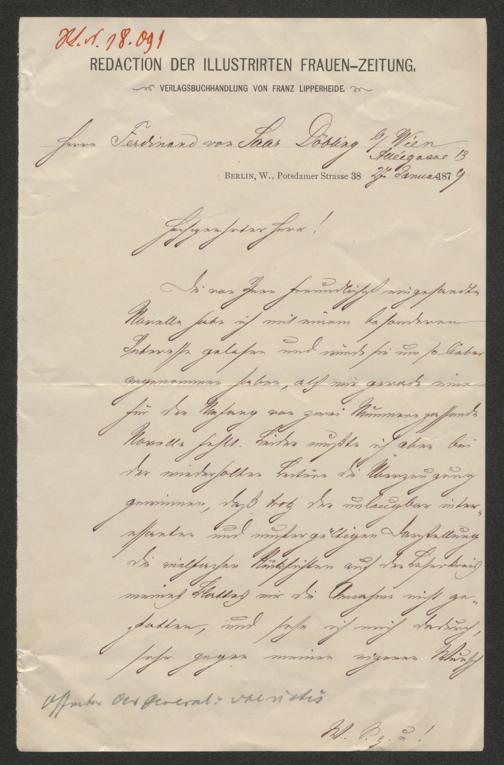 H. I. N. 78.091
REDACTION DER ILLUSTRIRTEN FRAUEN-ZEITUNG.
VERLAGSBUCHHANDLUNG VON FRANZ LIPPERHEIDE.
Herrn Ferdinand von Saar Döbling b/Wien
Alleegasse 13
BERLIN, W., Potsdamer Strasse 38 27. Januar 1879
Hochgeehrter Herr!
Die von Ihnen freundlichst eingesandte
Novelle habe ich mit einem besonderen
Interesse gelesen und würde sie um so lieber
angenommen haben, als mir gerade eine
für den Umfang von zwei Nummern passende
Novelle fehlt. Leider mußte ich aber bei
der wiederholten Lectüre die Überzeugung
gewinnen, daß trotz der unleugbar inter-
essanten und mustergültigen Darstellung
die vielfachen Rücksichten auf den Leserkreis
meines Blattes mir die Annahme nicht ge-
statten, und sehe ich mich dadurch,
sehr gegen meinen eigenen Wunsch
W. S. g. u!